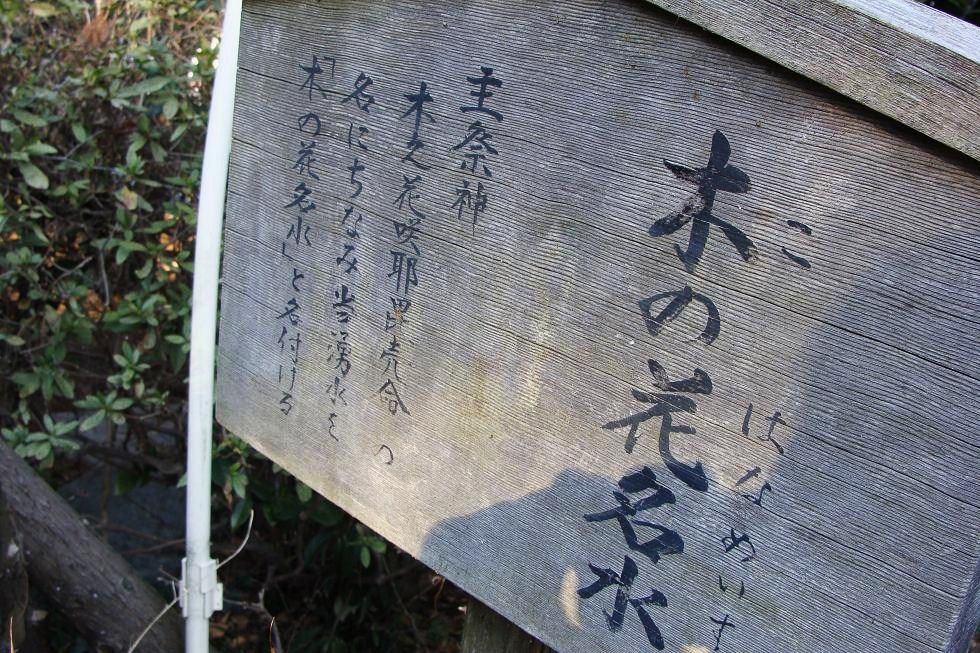 木の花名水
こ はなめいす
主祭神
木之花咲耶毘売命の
名にちなみ当湧水を
「木の花名水」と名付ける